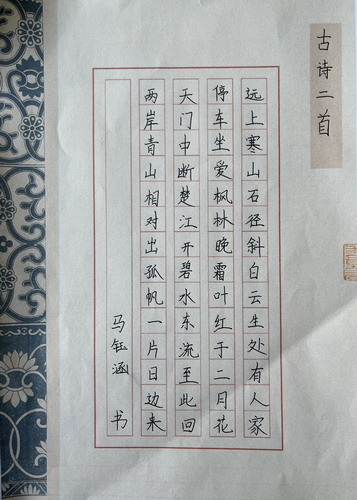 古诗二首
远上寒山石径斜白云生处有人家
停车坐爱枫林晚霜叶红于二月花
天门中断楚江开碧水东流至此回
两岸青山相对出孤帆一片日边来
马钰涵 书